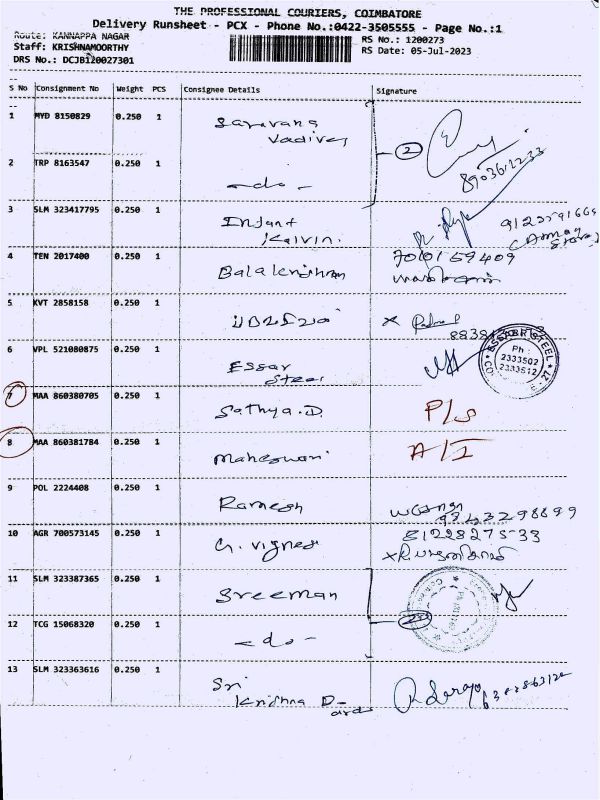 THE PROFESSIONAL COURIERS, COIMBATORE
Delivery Runsheet - PCX - Phone No.:0422-3505555 - Page No.:1
Route: KANNAPPA NAGAR
RS No.: 1200273
Staff: KRISHNAMOORTHY
RS Date: 05-Jul-2023
DRS No.: DCJB120027301
S No Consignment No Weight PCS Consignee Details Signature
1 MYD 8150829 0.250 1 Saravana
Vadivel
2 TRP 8163547 0.250 1 -do-
2
3 SLM 323417795 0.250 1 Injant
Kalvin.
4 TEN 2017400 0.250 1 Balakrishnan 7010159409
5 KVT 2858158 0.250 1 X
6 VPL 521080875 0.250 1 Essar
Steel
ESSAR STEEL
Ph :
2333502
2333512
7 MAA 860380705 0.250 1 Sathya.D P/S
8 MAA 860381784 0.250 1 Maheswari A/I
9 POL 2224408 0.250 1 Ramesh
9943298899
10 AGR 700573145 0.250 1 G. Vignesh 8122827533
11 SLM 323387365 0.250 1 Sreeman
12 TCG 15068320 0.250 1 -do-
13 SLM 323363616 0.250 1 Sri
Krishna